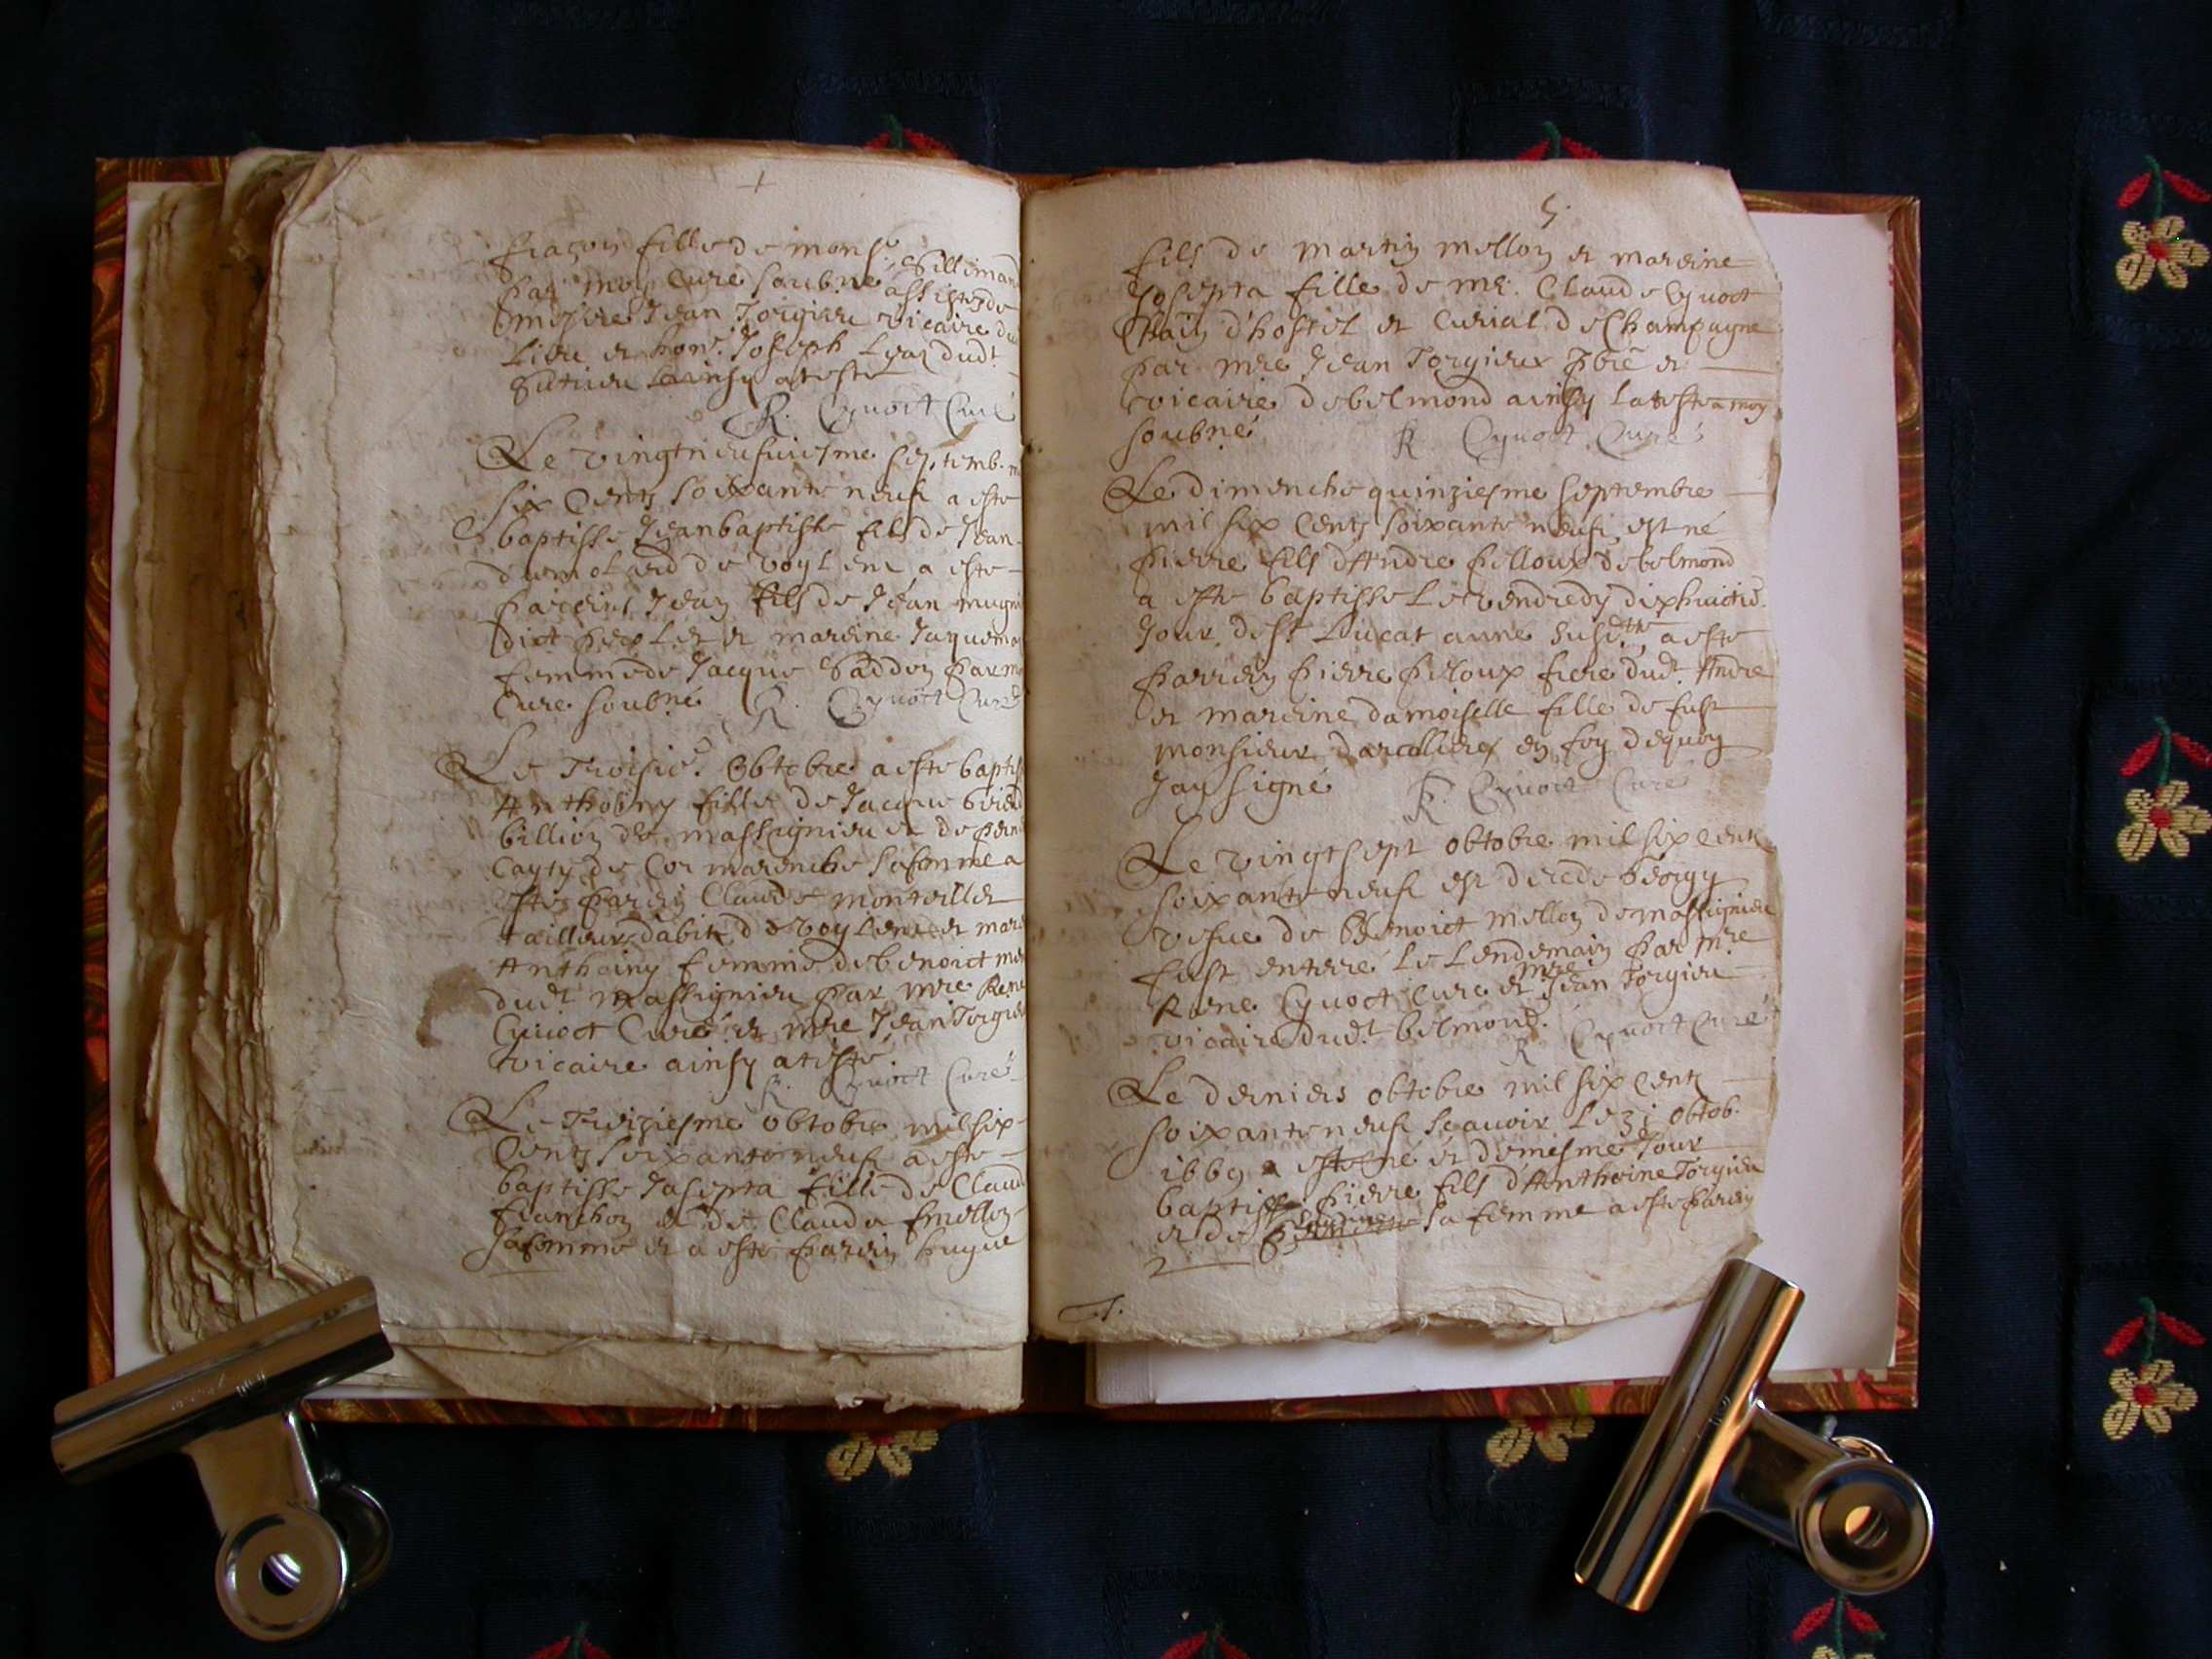 fille de mons.r
par moy Curé soubné assisté de
messire Jean Torgieu vicaire du
Lieu et hon. Joseph Lyaz dud.t
ainsy atesté
R. Cyuoct Curé
Le vingtneufuiesme septemb. m
six Cents soixante neuf a esté
baptisse Jeanbaptiste fils de Jean
dumolard de Voylene a esté
parrein Jean fils de Jean mugni
dict et mareine Jaquema
femme de Jacque Baddoz par mo
Cure soubné R. Cyuoct Curé
Le Troisie. Obtobre a esté baptis
Anthoiny fille de Jacque
billioz de massignieu et de
Cayty de Cormarenche sa femme a
esté parein Claude monteillet
tailleur d'abit de Voylene et mare
Anthoiny femme de benoict me
dud.t massignieu par mre Rene
Cyuoct Curé et mre Jean Torgieu
vicaire ainsy atesté.
R. Cyuoct Curé
Le Treiziesme obtobre mil six
Cents soixante neuf a esté
baptisse Josepta fille de Claud
franchoz et de Clauda
sa femme et a esté parein hugue
5.
fils de martin melloz et mareine
Josepta fille de mr. Claude Cyuoct
Chatn d'hostel et Curial de Champagne
par mre Jean Torgieux pbre et
vicaire de belmond ainsy l'ateste a moy
soubné R Cyuoct Curé
Le dimenche quinziesme septembre
mil six Cents soixante neuf est né
pierre fils d'Andre pilloux de belmond
a esté baptisse Le vendredy dixhuictie.
Jour de s.t Lucat anné susd.tte a esté
parrein pierre pilloux frere dud.t Andre
et mareine damoiselle fille de fust
monsieur darcollieres en foy dequoy
Jay signé R. Cyuoct Curé
Le vingtsept obtobre mil six cents
soixante neuf est decede Georgy
vefue de Benoict melloz de massignieu
fust enterré Le Lendemain par mre
Rene Cyuoct Cure et mre Jean Torgieu
vicaire dud.t belmond. R Cyuoct Curé
Le derniers obtobre mil six cents
soixante neuf scauoir Le 31 obtob.
1669 a esté né et de mesme Jour
baptissé pierre fils d'Anthoine Torgieu
et de sa femme a esté parein